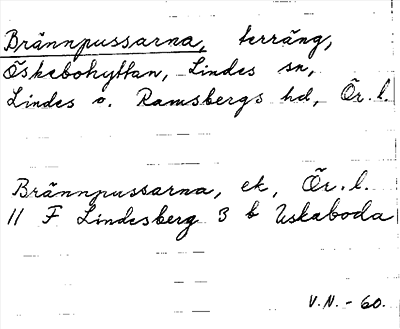 Brännpussarna, terräng,
Öskebohyttan, Lindes sn,
Lindes o. Ramsbergs hd, Ör. l.
Brännpussarna, ek, Ör. l.
11 F Lindesberg 3 b Uskaboda
V.N. - 60.